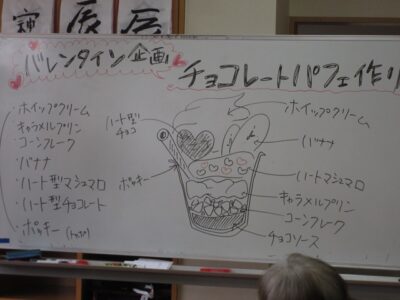 バレンタイン企画
チョコレートパフェ作り
・ホイップクリーム
・キャラメルプリン
・コーンフレーク
・バナナ
・ハート型マシュマロ
・ハート型チョコレート
・ポッキー
ハート型
チョコ
ポッキー
ホイップクリーム
バナナ
ハートマシュマロ
キャラメルプリン
コーンフレーク
チョコソース